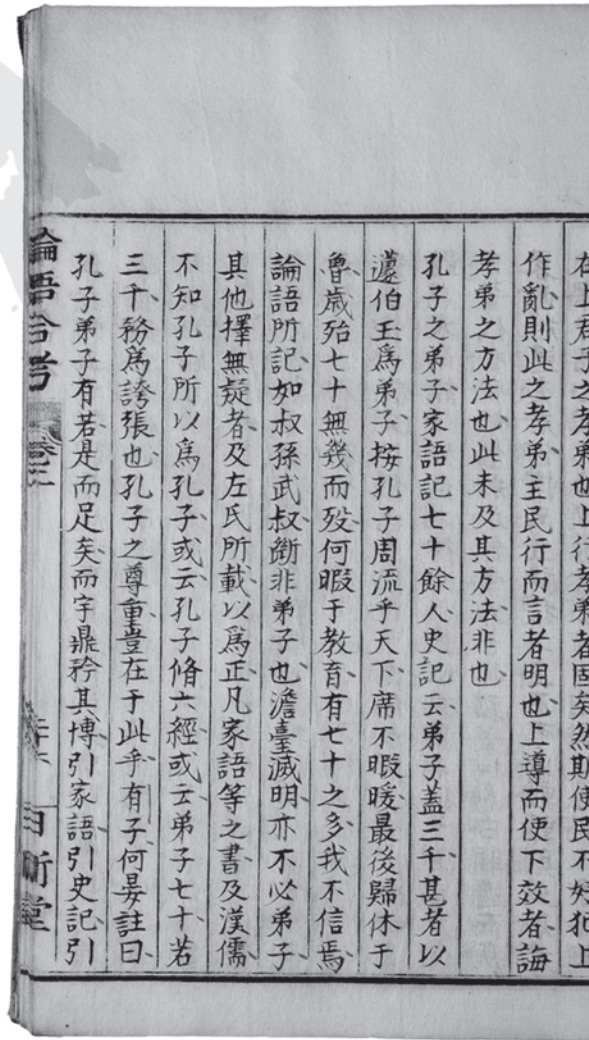 在上君子之孝弟也上行孝弟者固矣然斯使民不好犯上
作亂則此之孝弟主民行而言者明也上導而使下效者誨
孝弟之方法也此未及其方法非也
孔子之弟子家語記七十餘人史記云弟子蓋三千甚者以
蘧伯玉爲弟子按孔子周流乎天下席不暇暖最後歸休于
魯歲殆七十無幾而歿何暇于教育有七十之多我不信焉
論語所記如叔孫武叔斷非弟子也澹臺滅明亦不必弟子
其他擇無疑者及左氏所載以爲正凡家語等之書及漢儒
不知孔子所以爲孔子或云孔子脩六經或云弟子七十若
三千務爲誇張也孔子之尊重豈在于此乎有子何晏註曰
孔子弟子有若是而足矣而宇鼎矜其博引家語引史記引
論語合考 卷之一 日新堂